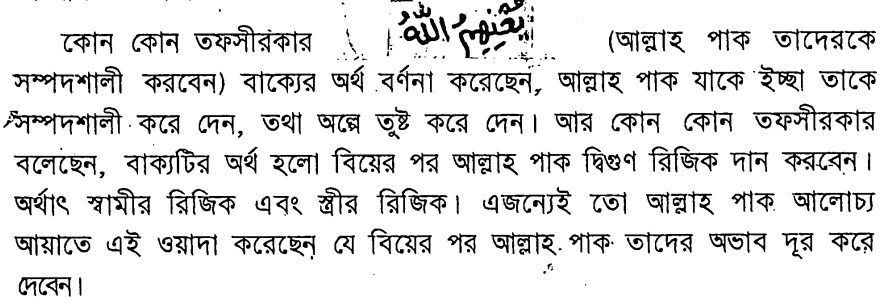 কোন কোন তফসীরকার يُغْنِهِمُ اللّٰهُ (আল্লাহ পাক তাদেরকে
সম্পদশালী করবেন) বাক্যের অর্থ বর্ণনা করেছেন, আল্লাহ পাক যাকে ইচ্ছা তাকে
সম্পদশালী করে দেন, তথা অল্পে তুষ্ট করে দেন। আর কোন কোন তফসীরকার
বলেছেন, বাক্যটির অর্থ হলো বিয়ের পর আল্লাহ পাক দ্বিগুণ রিজিক দান করবেন।
অর্থাৎ স্বামীর রিজিক এবং স্ত্রীর রিজিক। এজন্যেই তো আল্লাহ পাক আলোচ্য
আয়াতে এই ওয়াদা করেছেন যে বিয়ের পর আল্লাহ পাক তাদের অভাব দূর করে
দেবেন।